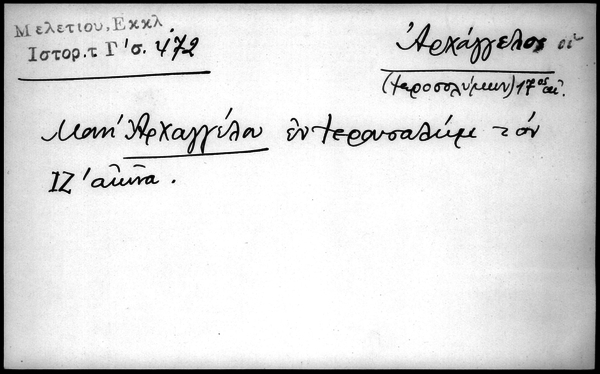 Μελετίου, Εκκλ
Ιστορ. τ Γ' σ. 472
Ἀρχάγγελος οἱ
(Ἱεροσολύμων) 17ος αἰ.
Μονὴ Ἀρχαγγέλου ἐν Ἱερουσαλὴμ τὸν
ΙΖ' αἰῶνα.